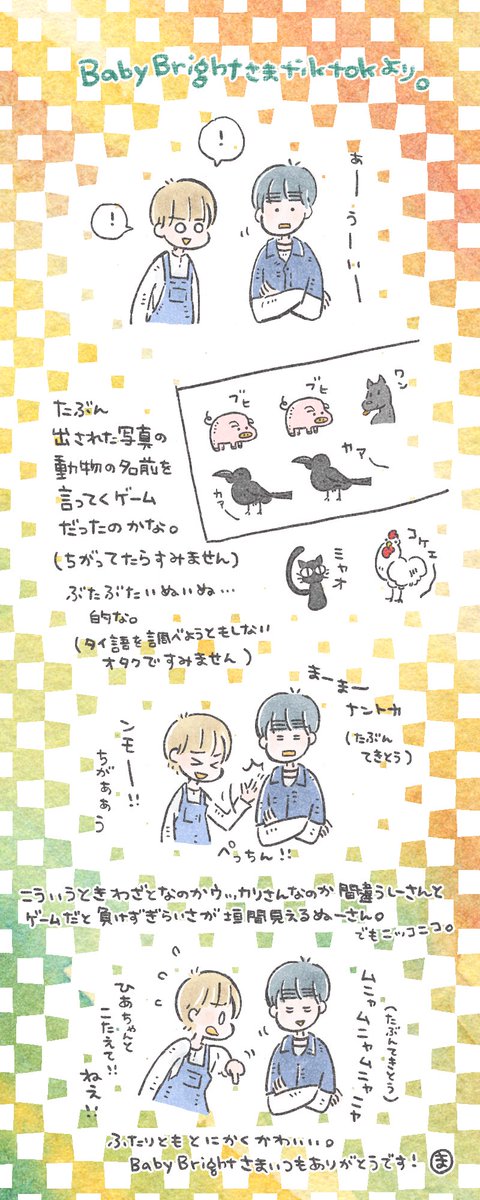 Baby Brightさまtiktokより。
!
!
あーうーいー
ワン
ブヒ
ブヒ
カァー
カァー
たぶん
出された写真の
動物の名前を
言ってくゲーム
だったのかな。
(ちがってたらすみません)
コケェー
ミャオ
ぶたぶたいぬいぬ…
的な。
(タイ語を調べようともしない
オタクですみません)
まーまー
ナントカ
(たぶん
てきとう)
ンモー!!
ちがぁぁう
ぺっちん!!
こういうときわざとなのかウッカリさんなのか間違うしーさんと
ゲームだと負けずぎらいさが垣間見えるぬーさん。
でもニッコニコ。
(たぶんてきとう)
ムニャムニャムニャニャ
ひあちゃんと
こたえて!!
ねえ!!
ふたりともとにかくかわいい。
Baby Brightさまいつもありがとうです!
ま